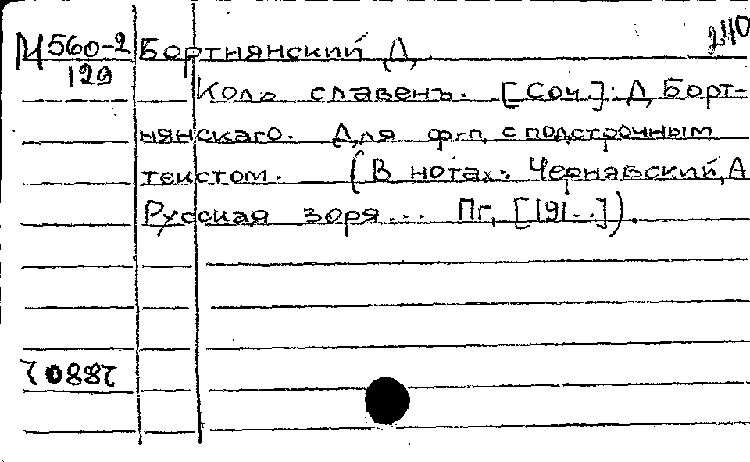 М 560-2 Бортнянский Д.
129
Коль славенъ. [Соч.]: Д. Борт-
нянскаго. Для ф.-п. с подстрочным
текстом. (В нотах: Чернявский, А
Русская зоря... Пг, [191..]).